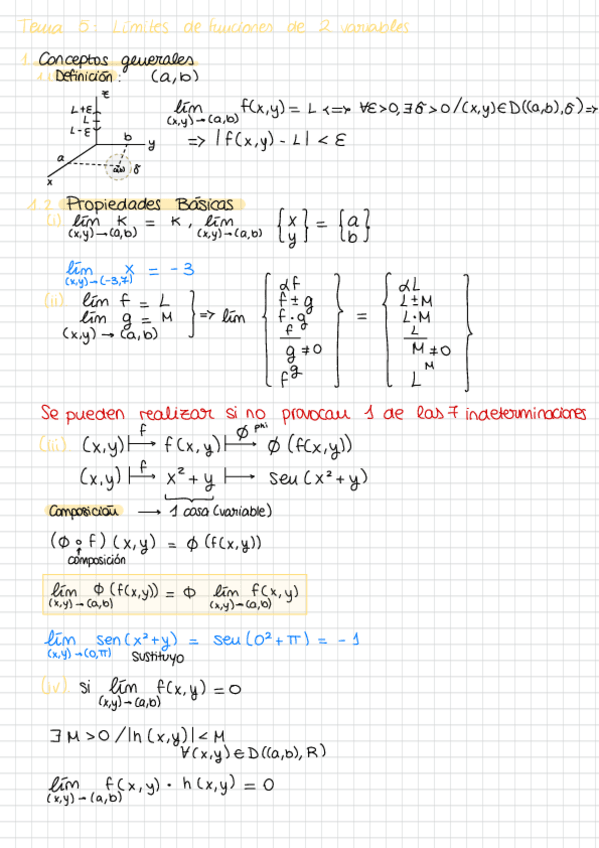 Tema 5: Límites de funciones de 2 variables
1. Conceptos generales
1.1 Definición: (a,b)
z
L+ε
L
L-ε
b
y
a
(a,b)
δ
x
lím f(x,y) = L <=> ∀ε>0, ∃δ>0/(x,y)∈D((a,b),δ) =>
(x,y)→(a,b)
=> |f(x,y) - L| < ε
1.2 Propiedades Básicas
(i) lím K = K, lím {x y} = {a b}
(x,y)→(a,b) (x,y)→(a,b)
lím x = -3
(x,y)→(-3,7)
(ii) lím f = L
lím g = M
(x,y)→(a,b)
=> lím
αf
f±g
f·g
f
g≠0
f^g
=
αL
L±M
L·M
L
M≠0
L^M
Se pueden realizar si no provocan 1 de las 7 indeterminaciones
(iii) (x,y) |—f→ f(x,y) |—Φ phi→ Φ(f(x,y))
(x,y) |—f→ x²+y |—→ sen(x²+y)
Composición → 1 cosa (variable)
(Φ∘f)(x,y) = Φ(f(x,y))
composición
lím Φ(f(x,y)) = Φ lím f(x,y)
(x,y)→(a,b) (x,y)→(a,b)
lím sen(x²+y) = sen(0²+π) = -1
(x,y)→(0,π) sustituyo
(iv) si lím f(x,y) = 0
(x,y)→(a,b)
∃M>0/|h(x,y)|<M
∀(x,y)∈D((a,b),R)
lím f(x,y)·h(x,y) = 0
(x,y)→(a,b)